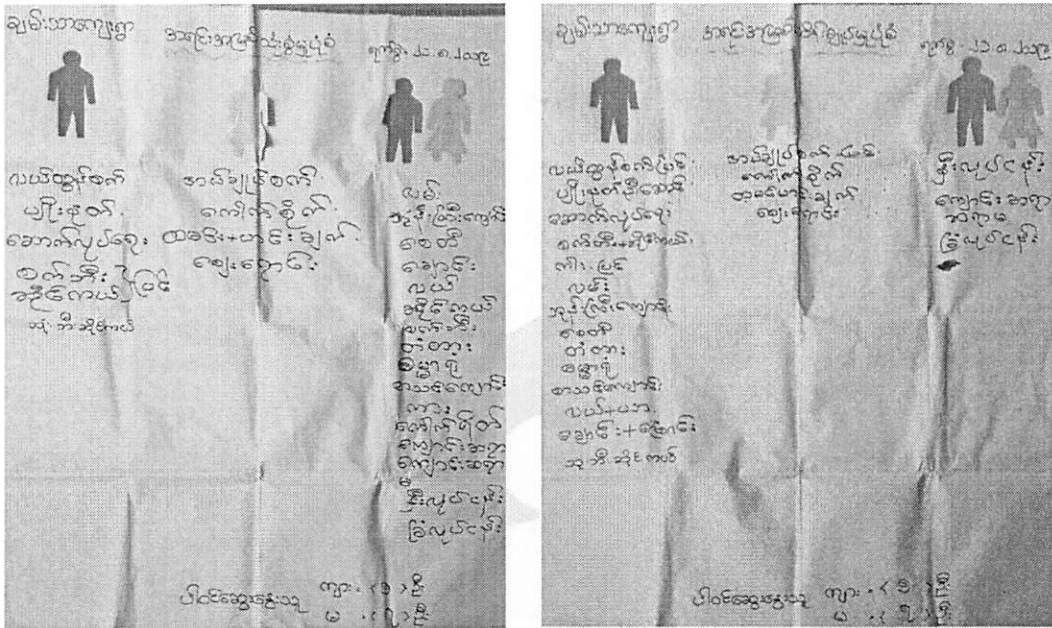 ချမ်းသာကျေးရွာ
အရင်းအမြစ်သုံးစွဲမှုပုံစံ
ရက်စွဲ
လယ်ထွန်စက်
ပျိုးနုတ်
ဆောက်လုပ်ရေး
စက်ဘီး
ဆိုင်ကယ် } ပြင်
သုံးဘီးဆိုင်ကယ်
အပ်ချုပ်စက်
ကောက်စိုက်
ထမင်း+ဟင်းချက်
ဈေးရောင်း
လမ်း
ဘုန်းကြီးကျောင်း
စေတီ
ချောင်း
လယ်
ဆိုင်ကယ်
စက်ဘီး
တံတား
ဓမ္မာရုံ
စာသင်ကျောင်း
ကား
ကောက်ရိတ်
ကျောင်းဆရာ
ကျောင်းဆရာမ
နှီးလုပ်ငန်း
ခြံလုပ်ငန်း
ပါဝင်ဆွေးနွေးသူ
ကျား
ဦး
မ
ဦး
ချမ်းသာကျေးရွာ
အရင်းအမြစ်
ရက်စွဲ
လယ်ထွန်စက်ပြင်
ပျိုးနုတ်
ဆောက်လုပ်ရေး
စက်ဘီး+ဆိုင်ကယ်
ကား ပြင်
လမ်း
ဘုန်းကြီးကျောင်း
စေတီ
တံတား
ဓမ္မာရုံ
စာသင်ကျောင်း
လယ်+ယာ
ချောင်း+မြောင်း
သုံးဘီးဆိုင်ကယ်
အပ်ချုပ်စက်
ကောက်စိုက်
ထမင်းဟင်းချက်
ဈေးရောင်း
နှီးလုပ်ငန်း
ကျောင်းဆရာ
ဆရာမ
ခြံလုပ်ငန်း
ပါဝင်ဆွေးနွေးသူ
ကျား
ဦး
မ
ဦး